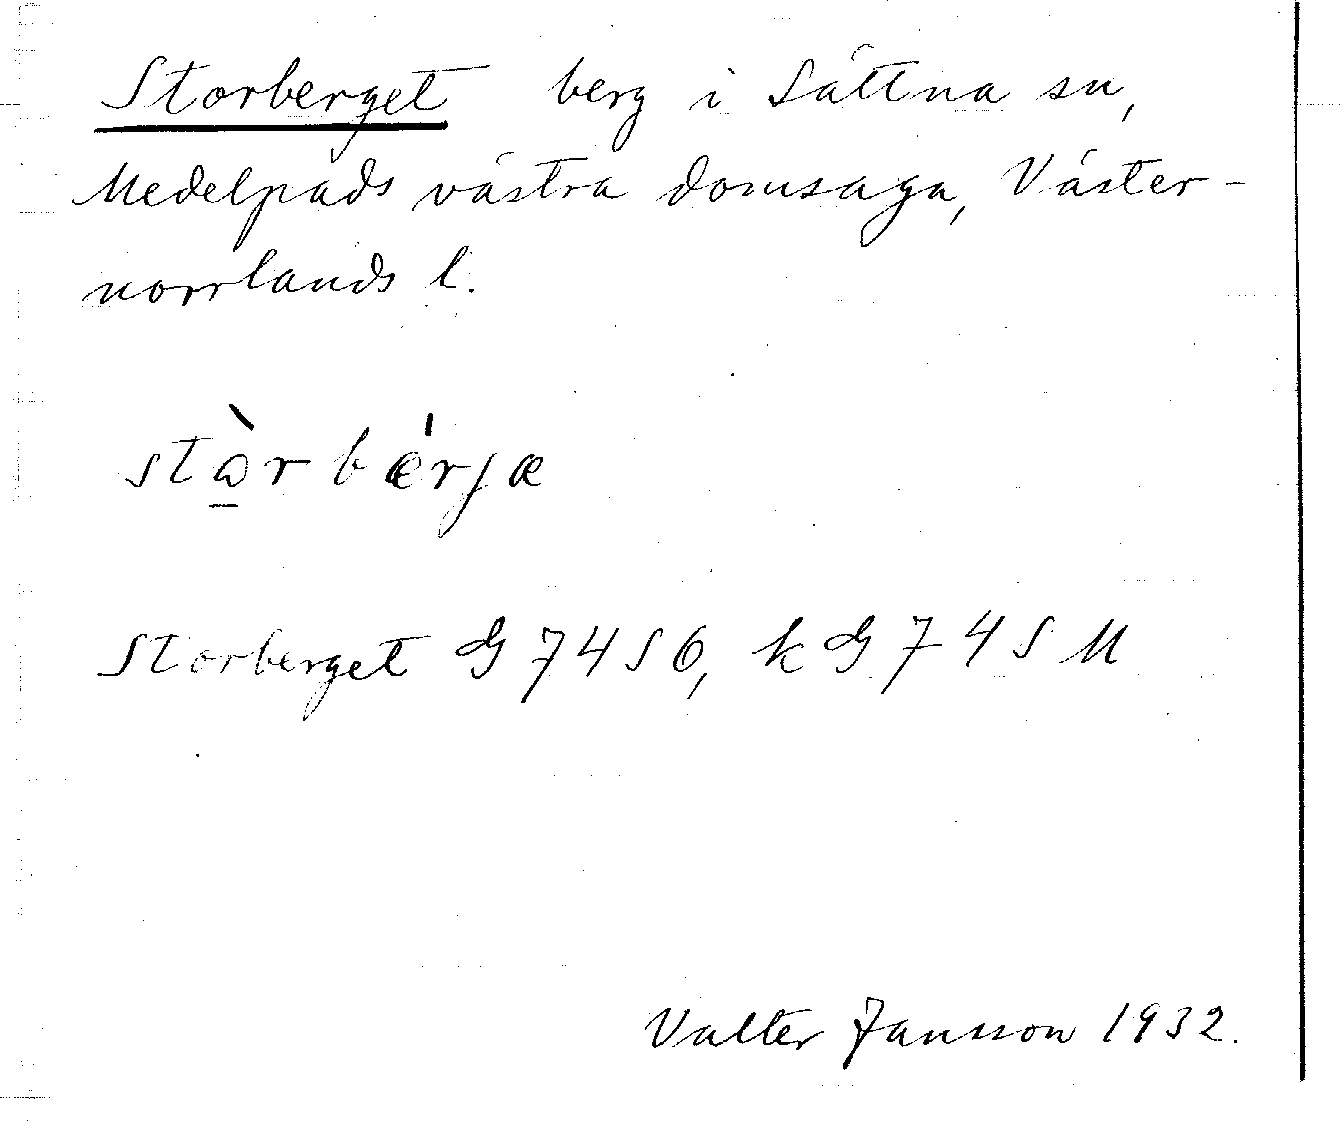 Storberget berg i Sättna sn,
Medelpads västra domsaga, Väster-
norrlands l.
stɷ̀rbǽrjæ
Storberget G 74 S 6, k G 74 S M
Valter Jansson 1932.